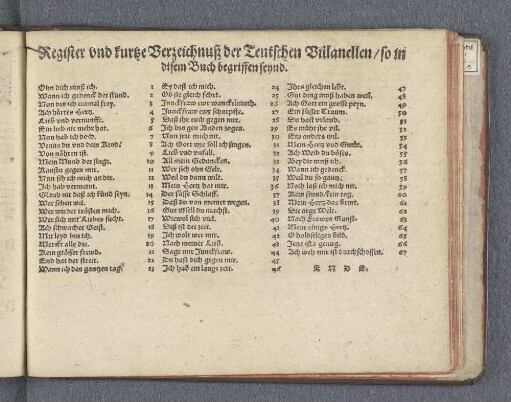 Register vnd kurtze Verzeichnuß der Teutschen Villanellen / so in
disem Buch begriffen seynd.
Ohn dich muß ich. 1
Wann ich gedenck der stund. 2
Nun bin ich einmal frey. 3
Ach hartes Hertz. 4
Lieb vnd vernunfft. 5
Ein lieb nit mehr hat. 6
Man hab ich doch. 7
8
Von nöhten ist. 9
Mein Mund der singt. 10
Kanstu gegen mir. 11
Nun sih mich an dir. 12
Ich hab vermeint. 13
Glaub nit daß ich künd seyn. 14
Wer sehen wil. 15
Wer wirdet trösten mich. 16
Wer sich mit Liebes sucht. 17
Ach schwacher Geist. 18
Mit leyd bin ich. 19
Werfft alle die. 20
Kein grösser freud. 21
End hat der streit. 22
Wann ich das gantzen tag. 23
Ey daßt ich mich. 24
Ob sie gleich fehrt. 25
Junckfraw ewr wanckelmuth. 26
Junckfraw ewr scharpffe. 27
Daß ihr euch gegen mir. 28
Ich bin gen Baden zogen. 29
Nun fahr mich an. 30
Ach Gott wie soll ich singen. 31
Lieb vnd vnfall. 32
All mein Gedancken. 33
Wer sich ohn Gelt. 34
Weil du dann wilt. 35
Mein Hertz hat mir. 36
Der süsse Schlaff. 37
Daß du von meinet wegen. 38
Gut Gsell du machst. 39
Wiewol sich vich. 40
Diß ist die zeit. 41
Ich wolt wer mit. 42
Nach meiner Lieb. 43
Sagt mir Junckfraw. 44
Du hast dich gegen mir. 45
Ich hab ein lange zeit. 46
Ihrs gleichen lebt. 47
Gut ding muß haben weil. 48
Ach Gott ein grosse peyn. 49
Ein süsser Traum. 50
Du hast vilmal. 51
Es muht ihr vil. 52
Ein anders wil. 53
Mein Hertz vnd Gmüht. 54
Ach Weib du böses. 55
Bey dir muß ich. 56
Wann ich gedenck. 57
Weil du so gantz. 58
Noch laß ich mich nit. 59
Kein stund kein tag. 60
Mein Hertz das brint. 61
Die arge Welt. 62
Nach Frawen Gunst. 63
Mein einigs Hertz. 64
O holdseliges bild. 65
Jetzt ists genug. 66
Ach weh mir ist durchschossen. 67
E N D E.